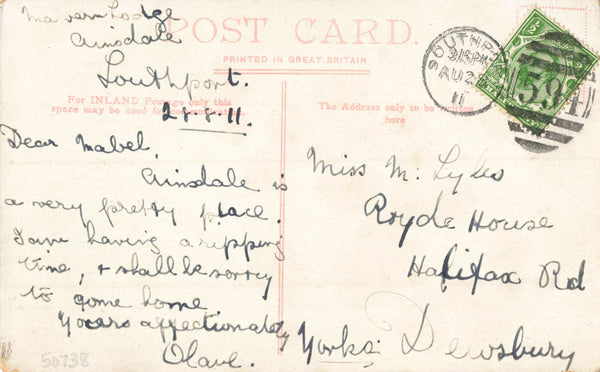 POST CARD.
PRINTED IN GREAT BRITAIN
For INLAND Postage only this
space may be used for communication.
The Address only to be written
here
Malvern Lodge
Ainsdale
Southport.
28.8.11.
Dear Mabel,
Ainsdale is
a very pretty place.
I am having a ripping
time, & shall be sorry
to come home
Yours affectionately
Olave.
Miss M. Lyles
Royde House
Halifax Rd
Dewsbury
Yorks:
SOUTHPORT
9.15PM
AU 28
11
50738